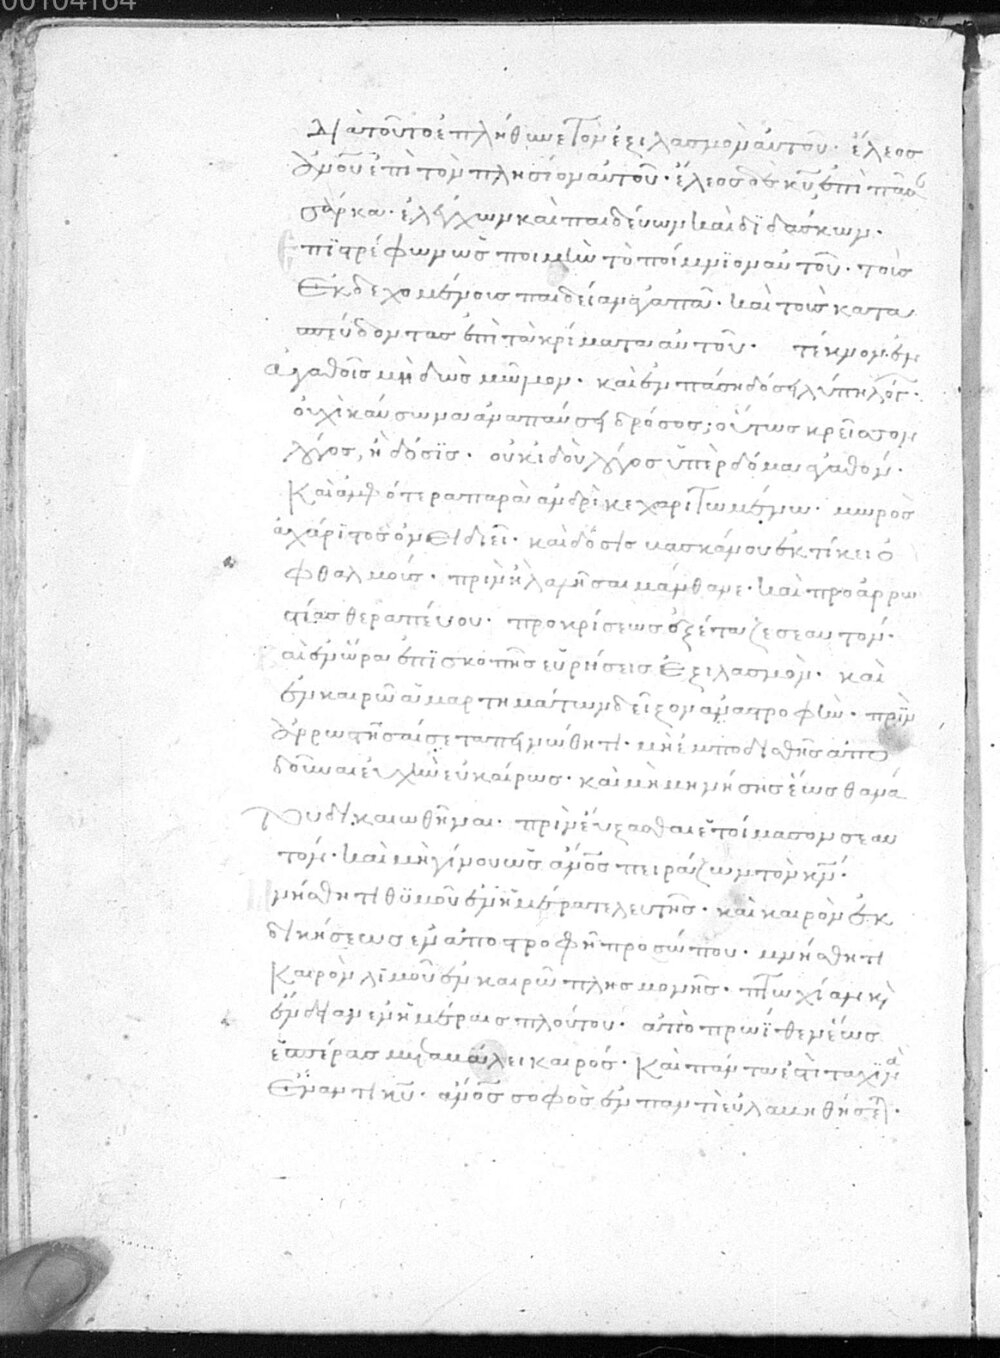 00104164
Διὰ τοῦτο ἐπλήθυνε τὸν ἐξιλασμὸν αὐτοῦ· ἔλεος
ἀνοῦ ἐπὶ τὸν πλησίον αὐτοῦ· ἔλεος δὲ κυ ἐπὶ πᾶσαν
σάρκα· ἐλέγχων καὶ παιδεύων καὶ διδάσκων·
Ἐπιστρέφων ὡς ποιμὴν τὸ ποίμνιον αὐτοῦ· τοὺς
ἐκδεχομένοις παιδείαν ἀγαπᾶ· καὶ τοὺς κατα
σπεύδοντας ἐπὶ τὰ κρίματα αὐτοῦ· τέκνον ἐν
ἀγαθοῖς μὴ δῶς μῶμον· καὶ ἐν πάση δόσει λύπη λόγ·
οὐχὶ καύσωνα ἀναπαύσει δρόσος; οὕτως κρεῖσσον
λόγος, ἢ δόσις· οὐκ ἰδοὺ λόγος ὑπὲρ δόμα ἀγαθόν·
Καὶ ἀμφότερα παρὰ ἀνδρὶ κεχαριτωμένω· μωρὸς
ἀχάριτος ὀνειδιεῖ· καὶ δόσις βασκάνου ἐκτίκει ὀ
φθαλμούς· πρὶν ἢ λαλῆσαι μάνθανε· καὶ πρὸ ἀρρω
στίας θεραπεύου· πρὸ κρίσεως ἐξέταζε σεαυτόν·
αὶ ἐν ὥρα ἐπισκοπῆς εὑρήσεις ἐξιλασμὸν· καὶ
ἐν καιρῶ ἁμαρτημάτων δεῖξον ἀναστροφὴν· πρὶν
ἀρρωστῆσαί σε ταπεινώθητι· μὴ ἐμποδισθῆς ἀπο
δοῦναι εὐχὴν εὐκαίρως· καὶ μὴ μμήσης ἕως θανά
του δικαιωθῆναι· πρὶν εὔξασθαι ἑτοίμασον σεαυ
τόν· καὶ μὴ γίνου ὡς ἄνος πειράζων τὸν κν·
μνήσθητι θυμοῦ ἐν ἡμέρα τελευτῆς· καὶ καιρὸν ἐκ
δικήσεως ἐν ἀποστροφῆ προσώπου· μνήσθητι
Καιρὸν λιμοῦ ἐν καιρῶ πλησμονῆς· πτωχίαν κὶ
ἔνδειαν ἐν ἡμέραις πλούτου· ἀπὸ πρωῒ θεν ἕως
ἑσπέρας μεταβάλλει καιρός· Καὶ πάντα ἐστὶ ταχινὰ
ἔναντι κυ· ἄνος σοφὸς ἐν παντὶ εὐλαβηθήσετ·